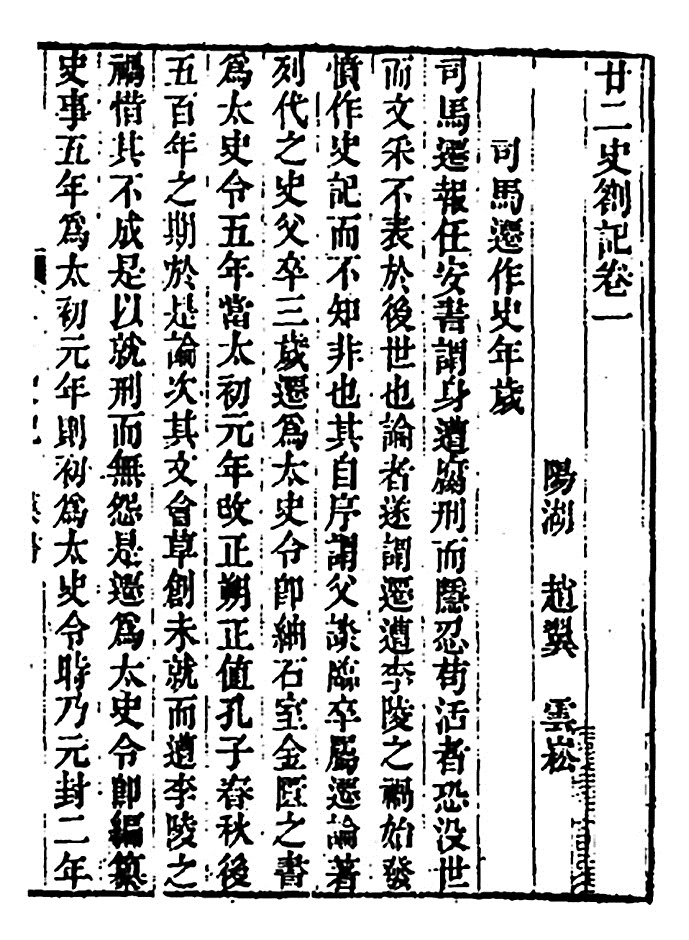 廿二史劄記卷一
陽湖 趙翼 雲崧
司馬遷作史年歲
司馬遷報任安書謂身遭腐刑而隱忍苟活者恐没世
而文采不表於後世也論者遂謂遷遭李陵之禍始發
憤作史記而不知非也其自序謂父談臨卒屬遷論著
列代之史父卒三歲遷爲太史令卽紬石室金匱之書
爲太史令五年當太初元年改正朔正值孔子春秋後
五百年之期於是論次其文會草創未就而遭李陵之
禍惜其不成是以就刑而無怨是遷爲太史令卽編纂
史事五年爲太初元年則初爲太史令時乃元封二年